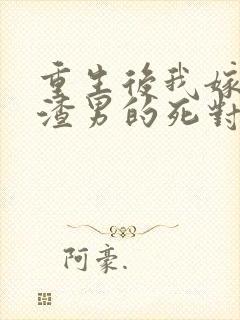 重生後我嫁
渣男的死對
阿豪.